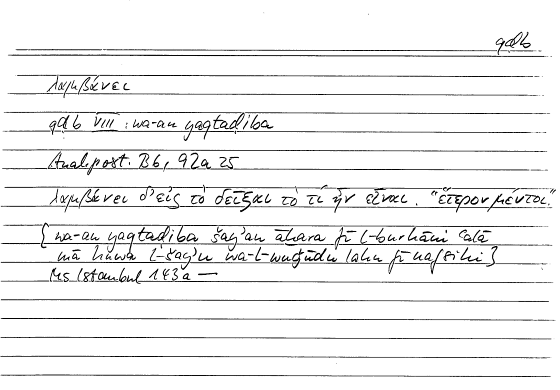 qdb
λαμβάνει
qdb VIII : wa-an yaqtaḍiba
Anal. post. B6, 92a 25
λαμβάνει δ' εἰς τὸ δεῖξαι τὸ τί ἦν εἶναι. "ἕτερον μέντοι."
{wa-an yaqtaḍiba šay'an āḫara fī l-burhāni ʿalā
mā huwa l-šay'u wa-l-wuǧūdu lahu fī nafsihi}
Ms Istanbul 143a —